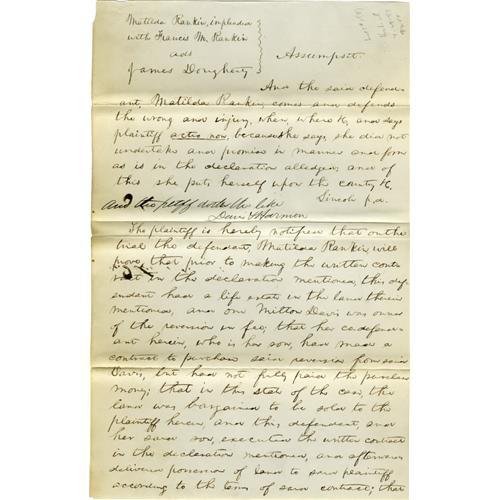 Matilda Rankin, impleaded
with Francis M. Rankin
ads
James Dougherty
Assumpsit.
And the said defend-
ant, Matilda Rankin comes and defends
the wrong and injury, when, where &c, and says
plaintiff actio non, because she says she did not
undertake and promise in manner and form
as is in the declaration alledged; and of
this she puts herself upon the country &c.
Lincoln p.d.
And the pltff doth the like
Davis & Harmon
The plaintiff is hereby notified that on the
trial the defendant, Matilda Rankin will
prove that prior to making the written cont-
ract in the declaration mentioned, this def-
endant had a life estate in the land therein
mentioned, and one Milton Davis was owner
of the reversion in fee; that her codefend-
ant herein, who is her son, had made a
contract to purchase said reversion from said
Davis, but had not fully paid the purchase
money; that in this state of the case, the
land was bargained to be sold to the
plaintiff herein, and this defendant, and
her said son, executed the written contract
in the declaration mentioned, and afterwards
delivered possession of land to said plaintiff
according to the terms of said contract; that